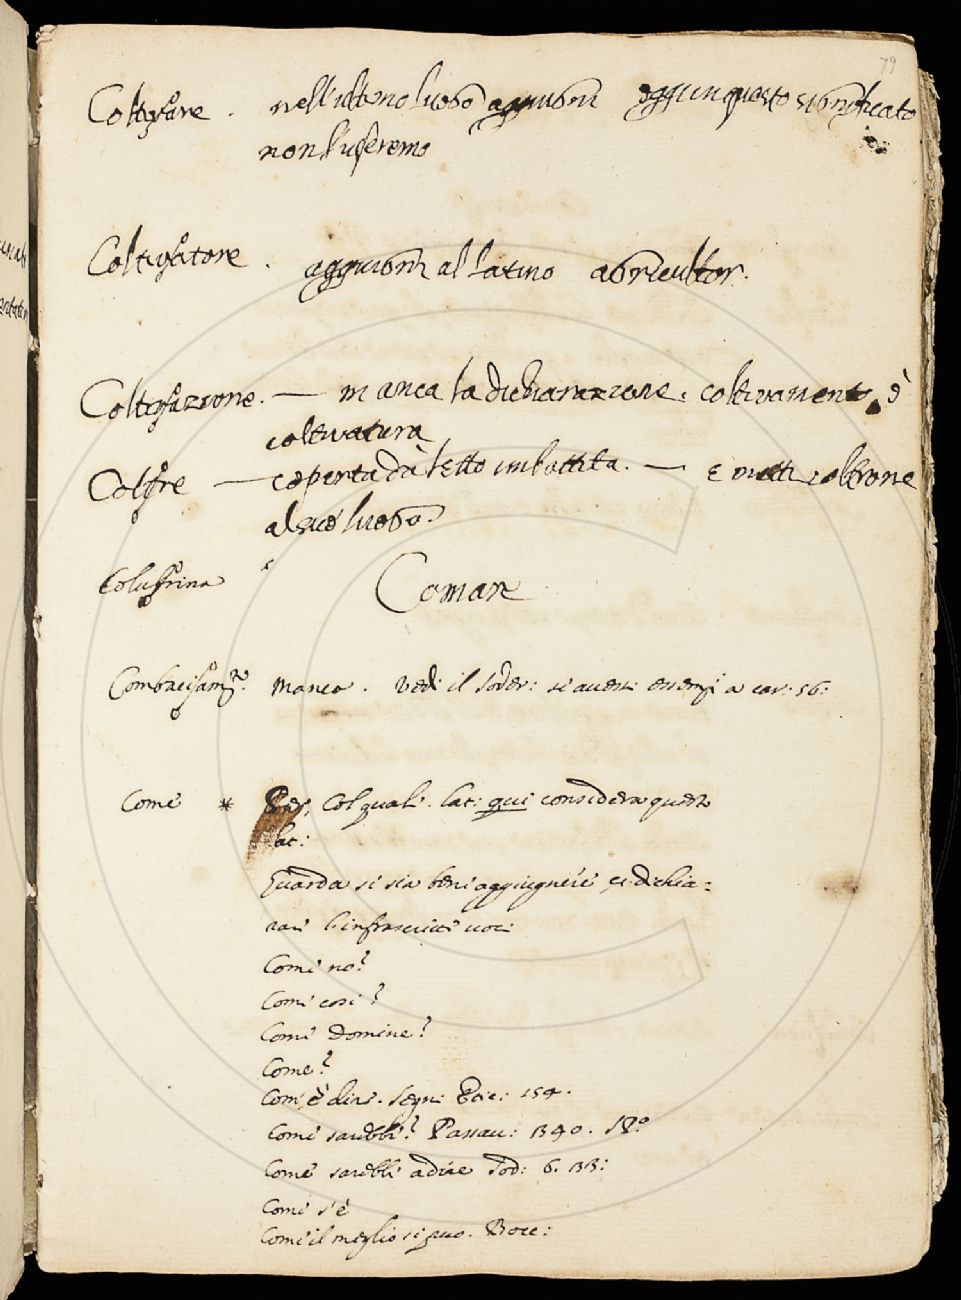 79
Coltivare. nell'ultimo luogo aggiugni oggi in questo significato
non l'useremo
Coltivatore. aggiugni al latino agricultor.
Coltivazione. — manca la dichiarazione. coltivamento, ò
coltivatura
Coltre — coperta dà letto imbottita. — e metti coltrone
al suo luogo.
Colubrina
Comare
manca. Vedi il Soder: si avesse esempi a car: 56:
Come * Per, Col quale. lat: qui considera questo
lat:
Guarda se sia bene aggiugnere, e dichia=
rare l'infrascritte voci
Come no?
Come cosi?
Come domine?
Come?
Com'è dire. Segn: Etic: 154.
Come sarebbe? Passav: 340.
Come sarebbe a dire Sod: 6.
Come s'è
Come il meglio si puo. Bocc: